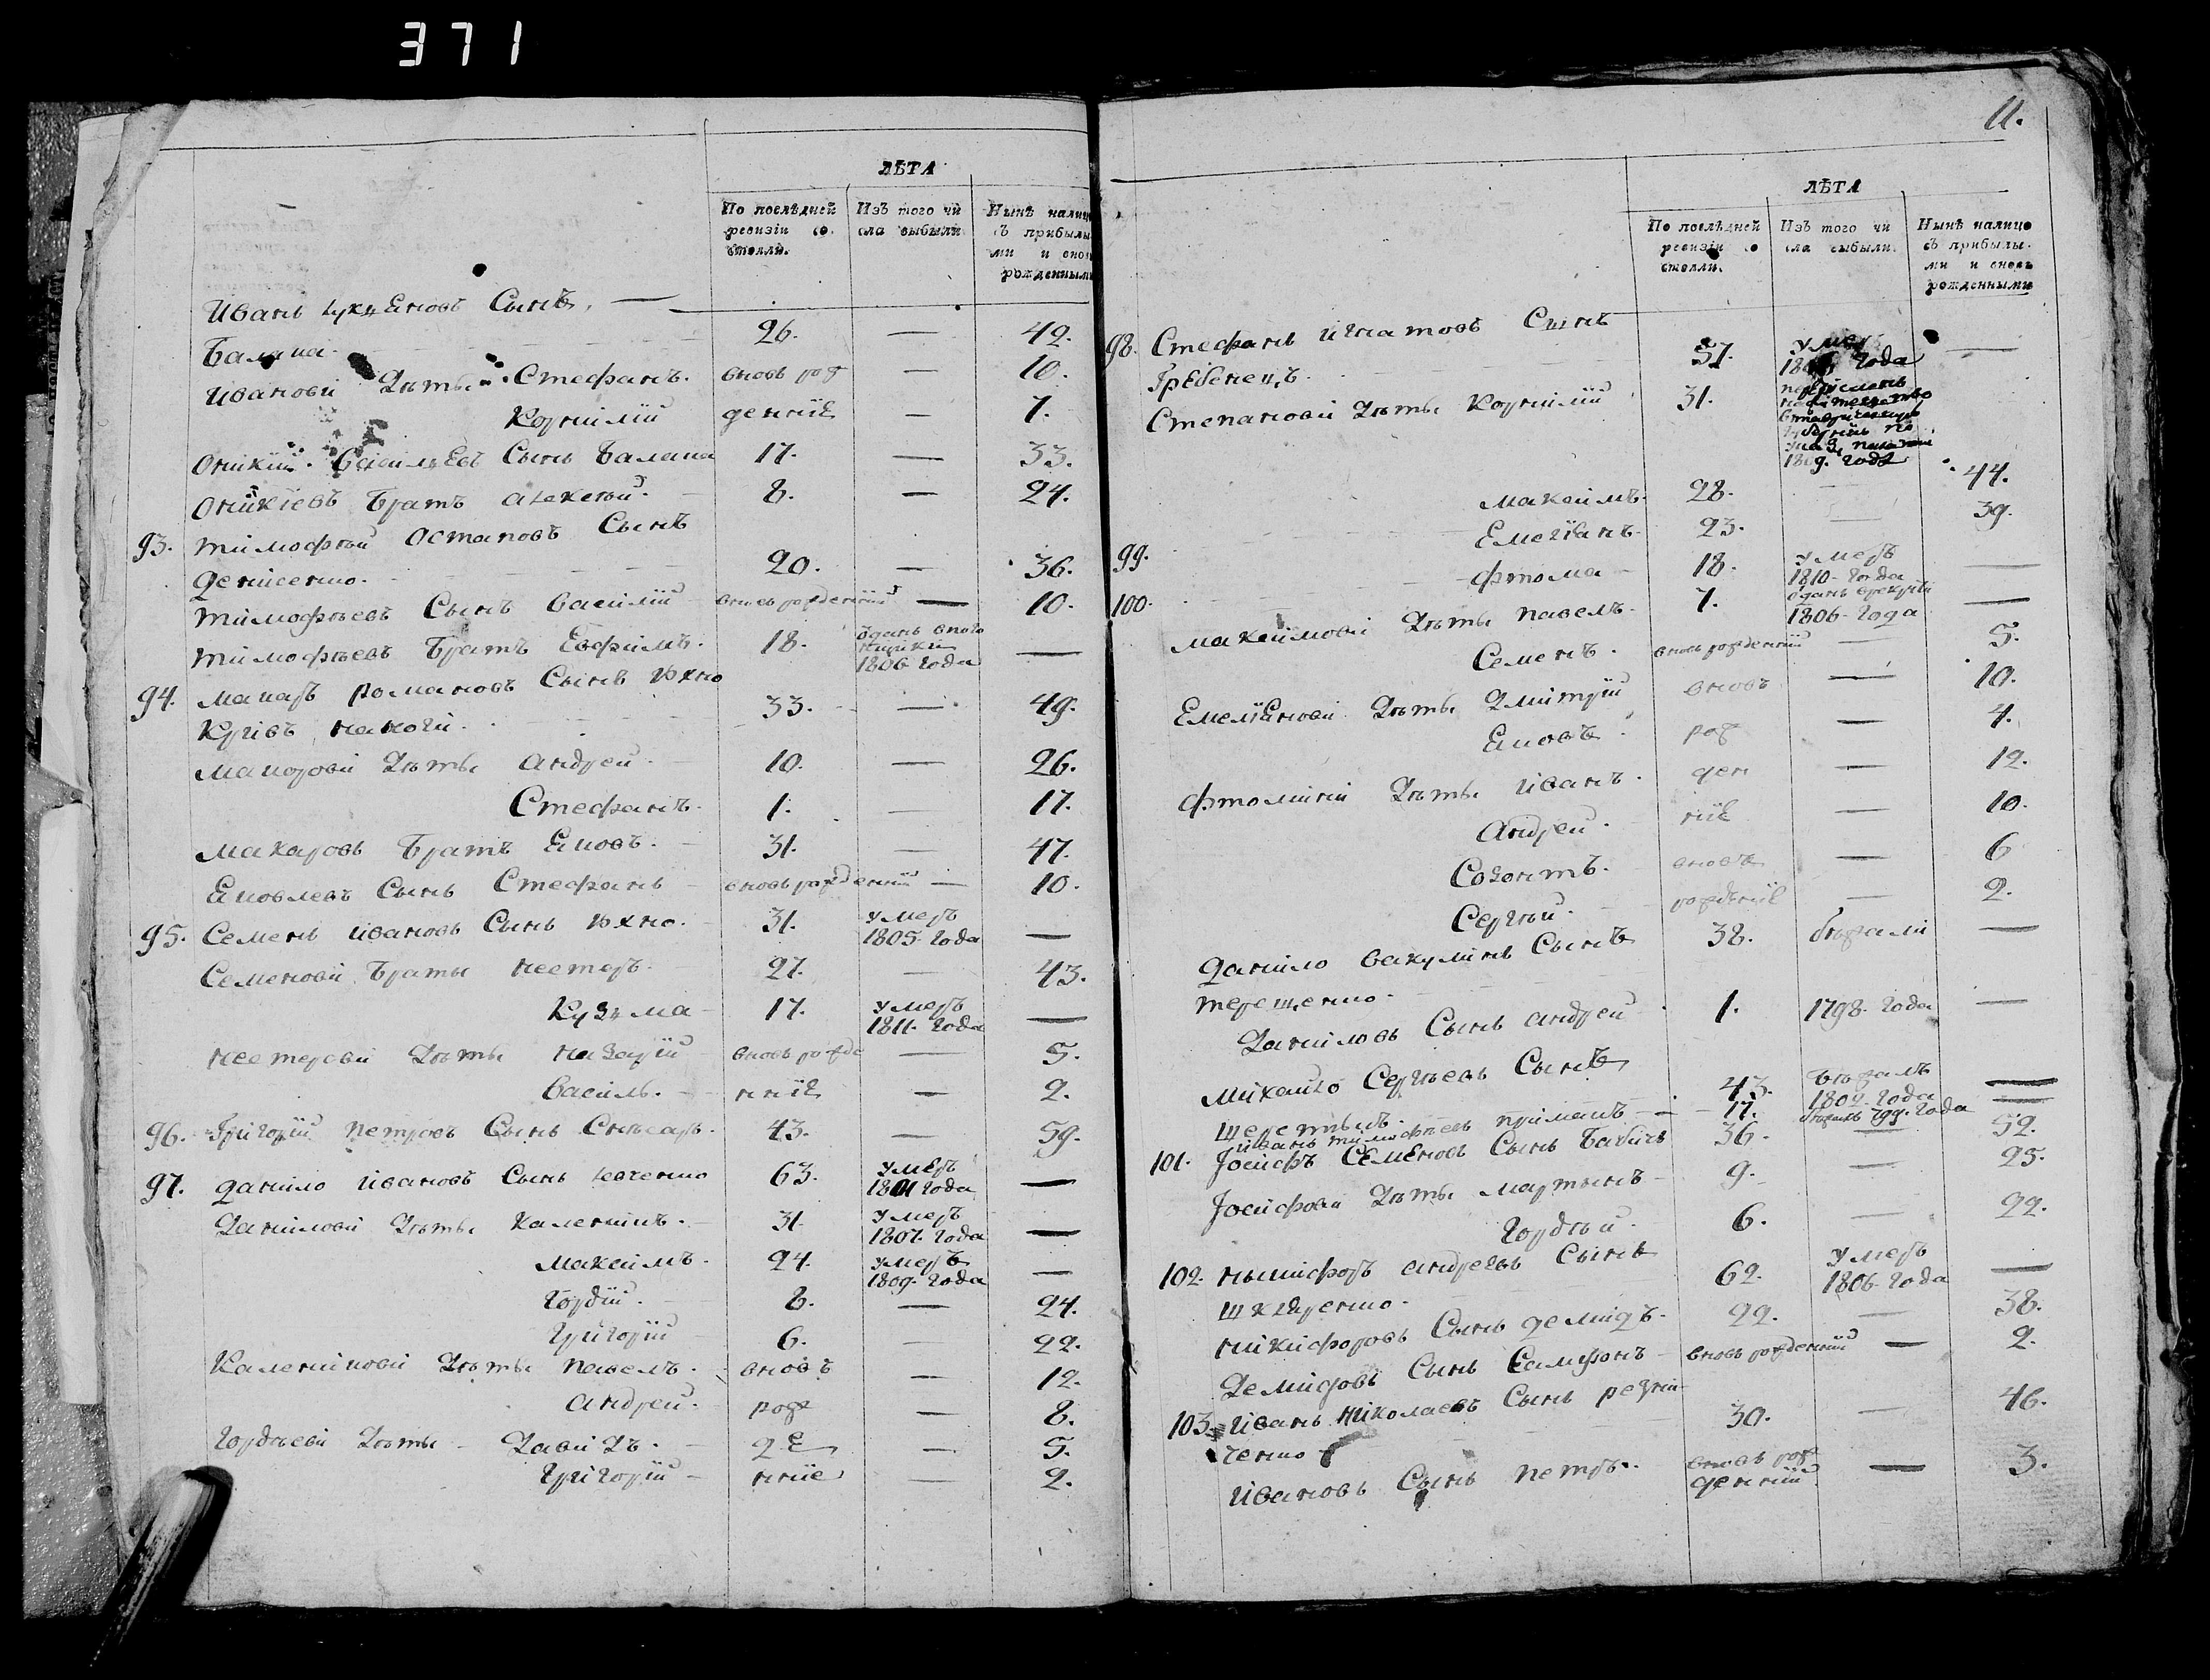 371
ЛѢТА
По послѣдней ревизіи со стояли.
Изъ того чи сла выбыли
Нынѣ налиц съ прибылы ми и внов рожденными
Иванъ Сынъ
26. — 42.
Ивановы Дѣти Стефанъ. вновь рож — 10.
Корнилій деннiе — 7.
Сынъ Балаца 17. — 33.
Оникіевъ Братъ Алексѣй. 8. — 24.
93. Тимофѣй Остаповъ Сынъ
Денисенко. 20. — 36.
Тимофѣевъ Сынъ Василій вновь рожденный — 10.
Тимофѣевъ Братъ Евфимъ. 18. 1806 года —
94. Макаръ Романовъ Сынъ Юхно
33. — 49.
Макаровы Дѣти Андрей 10. — 26.
Стефанъ. 1. — 17.
Макаровъ Братъ Яковъ. 31. — 47.
Яковлевъ Сынъ Стефанъ вновь рожденный — 10.
95. Семенъ Ивановъ Сынъ Юхно. 31. умеръ 1805. года —
Семеновы Браты Нестеръ. 27. — 43.
Кузьма 17. умеръ 1811. года —
Нестеровы Дѣти Назарій вновь рожде — 5.
Василь. нніе — 2.
96. Григорій Петровъ Сынъ Слѣсарь. 43. — 59.
97. Данило Ивановъ Сынъ Левченко 63. умеръ 1801 года —
Даниловы Дѣти Каленикъ. 31. умеръ 1807. года —
Максимъ. 24. умеръ 1809. года —
Гордій. 8. — 24.
Григорій 6. — 22.
Калениковы Дѣти Павелъ. вновь — 12.
Андрей. рож — 8.
Гордѣевы Дѣти Давидъ. де — 5.
Григорій нніе — 2.
11.
ЛѢТА
По послѣдней ревизіи со стояли.
Изъ того чи сла выбыли.
Нынѣ налицо съ прибылы. ми и вновь рожденными
98. Стефанъ Игнатовъ Сынъ
Гребенецъ. 57. умер года —
Степановы Дѣти Корнилій 31. 1809. года
Максимъ. 28. — 44.
Емеліанъ. 23. — 39.
99. Фтома 18. умеръ 1810 года —
100. Максимовы Дѣти Павелъ. 7. отданъ врекруты 1806 года —
Семенъ. вновь рожденный — 5.
Емеліановы Дѣти Дмитрій вновь — 10.
Яковъ рож — 4.
Фтомины Дѣти Иванъ. ден — 12.
Андрей. ніе — 10.
Созонтъ. вновь — 6
Сергѣй. рожденіе — 2.
Данило Вакулинъ Сынъ 38. бѣжали —
Терещенко.
Даниловъ Сынъ Андрей 1. 1798. года —
Михайло Сергѣевъ Сынъ
43. бѣжалъ 1802. года —
Иванъ Тимофѣевъ примакъ 17. бѣжалъ 799. года —
101. Іосифъ Семеновъ Сынъ Бабичъ 36. — 52.
Іосифовы Дѣти Мартынъ 9. — 25.
Гордѣй. 6. — 22.
102. Никифоръ Андреевъ Сынъ
62. умеръ 1806. года —
Никифоровъ Сынъ Демидъ. 22. — 38.
Демидовъ Сынъ Самсонъ вновь рожденный — 2.
103. Иванъ Николаевъ Сынъ Резни
ченко 30. — 46.
Ивановъ Сынъ Петръ. вновь рож денный — 3.